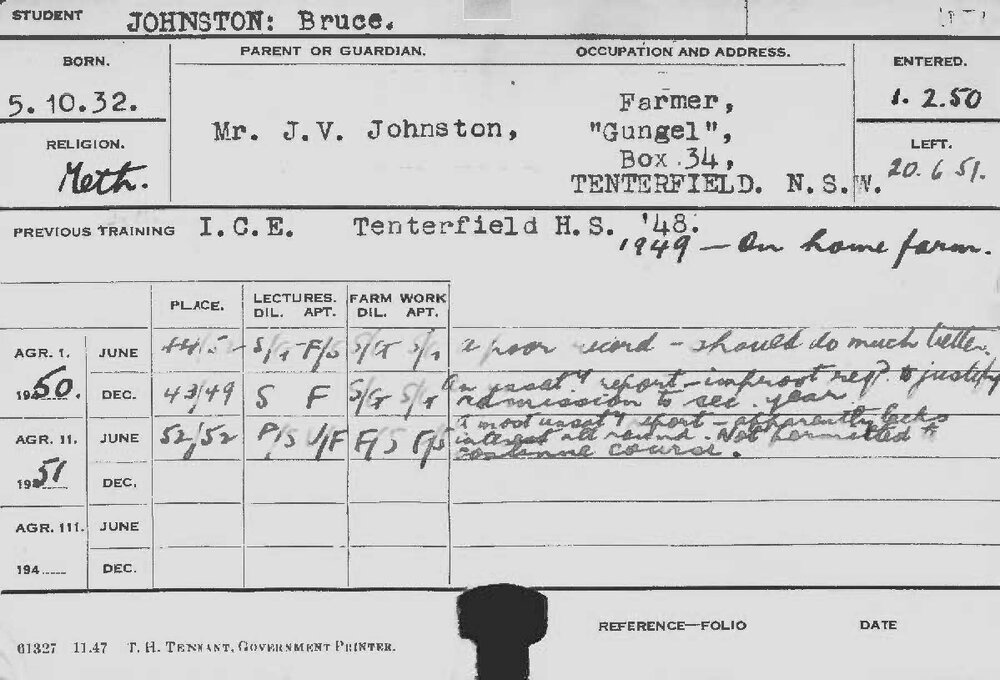 STUDENT JOHNSTON: Bruce.
BORN. PARENT OR GUARDIAN. OCCUPATION AND ADDRESS. ENTERED.
5.10.32. Mr. J.V. Johnston, Farmer, 1. 2.50
"Gungel",
RELIGION. Box 34, LEFT.
Meth. TENTERFIELD. N.S.W. 20.6 51.
PREVIOUS TRAINING I.C.E. Tenterfield H.S. '48.
1949 — On home farm.
PLACE. LECTURES. FARM WORK
DIL. APT. DIL. APT.
AGR. 1. JUNE S/G F/S S/G S/G a poor record - should do much better.
1950. DEC. 43/49 S F S/G S/G An unsat.y report - improvt req.d to justify
admission to sec. year.
AGR. 11. JUNE 52/52 P/S U/F F/S F/S A most unsat.y report - apparently lacks
interest all round. Not permitted to
continue course.
1951 DEC.
AGR. 111. JUNE
194 DEC.
REFERENCE—FOLIO DATE
61327 11.47 T. H. TENNANT, GOVERNMENT PRINTER.